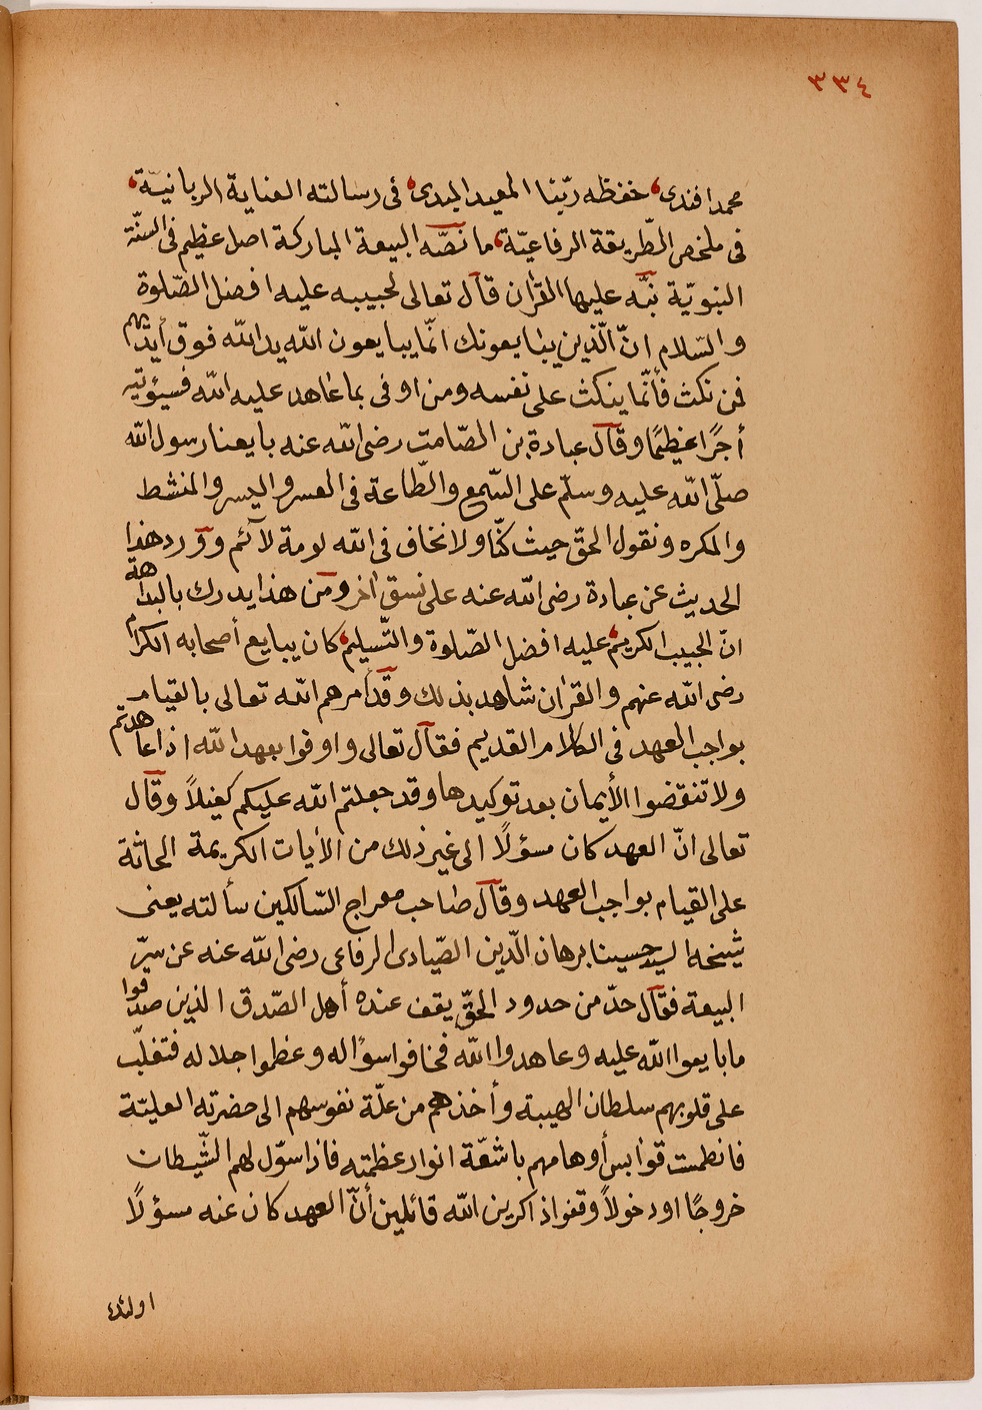 ٣٣٤
محمد افندى، حفظه ربّنا المعيد المبدى، فى رسالته العناية الربانيّة،
فى ملخص الطّريقة الرفاعيّة، ما نصّه البيعة المباركة اصل عظيم فى السنّة
النبويّة نبّه عليها القرآن قال تعالى لحبيبه عليه افضل الصّلوة
والسّلام انّ الّذين يبايعونك انّما يبايعون الله يد الله فوق أيديهم
فمن نكث فأنّما ينكث على نفسه ومن اوفى بما عاهد عليه الله فسيؤتيه
أجرًا عظيمًا وقال عبادة بن الصّامت رضى الله عنه بايعنا رسول الله
صلّى الله عليه وسلّم على السّمع والطّاعة فى العسر واليسر والمنشط
والمكره ونقول الحقّ حيث كنّا ولا نخاف فى الله لومة لآئم وورد هذا
الحديث عن عبادة رضى الله عنه على نسق اٰخر ومن هذا يدرك بالبداهة
انّ الحبيب الكريم، عليه افضل الصّلوة والتّسليم، كان يبايع أصحابه الكرام
رضى الله عنهم والقرٰان شاهد بذلك وقد أمرهم الله تعالى بالقيام
بواجب العهد فى الكلام القديم فقال تعالى واوفوا بعهد الله اذا عاهدتم
ولا تنقضوا الأيمان بعد توكيدها وقد جعلتم الله عليكم كفيلاً وقال
تعالى انّ العهد كان مسؤلًا الى غير ذلك من الأيات الكريمة الحاثّة
على القيام بواجب العهد وقال صاحب معراج السّالكين سألته يعنى
شيخه السيد حسينا برهان الدّين الصّيادى الرفاعى رضى الله عنه عن سرّ
البيعة فقال حدّ من حدود الحقّ يقف عنده أهل الصّدق الذين صدقوا
ما بايعوا الله عليه وعاهدوا الله فخافوا سؤاله وعظموا جلاله فتغلّب
على قلوبهم سلطان الهيبة وأخذهم من علّة نفوسهم الى حضرته العليّة
فانطمست قوابس أوهامهم باشعّة انوار عظمته فاذا سوّل لهم الشّيطان
خروجًا او دخولاً وقفوا ذاكرين الله قائلين أنّ العهد كان عنه مسؤلًا
اولئك